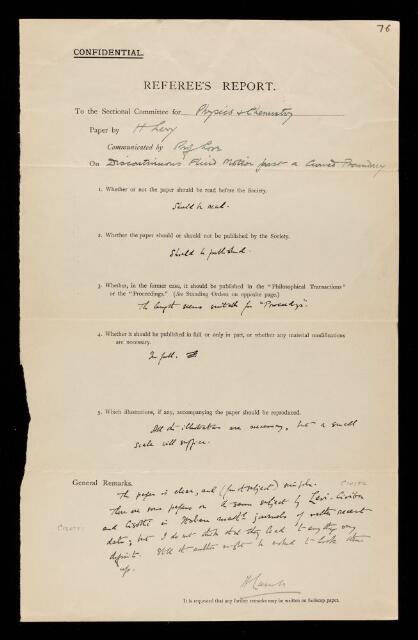 76
CONFIDENTIAL.
REFEREE'S REPORT.
To the Sectional Committee for Physics & Chemistry
Paper by H Levy
Communicated by Prof Love
On Discontinuous Fluid Motion past a Curved Boundary
1. Whether or not the paper should be read before the Society.
Should be read.
2. Whether the paper should or should not be published by the Society.
Should be published.
3. Whether, in the former case, it should be published in the "Philosophical Transactions"
or the "Proceedings." (See Standing Orders on opposite page.)
The length seems suitable for "Proceedings".
4. Whether it should be published in full or only in part, or whether any material modifications
are necessary.
In full.
5. Which illustrations, if any, accompanying the paper should be reproduced.
All the illustrations are necessary, but a small
scale will suffice.
General Remarks.
The paper is clear, and (for the subject) simple.
There are some papers on the same subject by Levi-Civita
and Cisotti in Italian math journals of rather recent
date; but I do not think that they lead to anything very
definite. Still the author might be asked to look them
up.
H Lamb
It is requested that any further remarks may be written on foolscap paper.